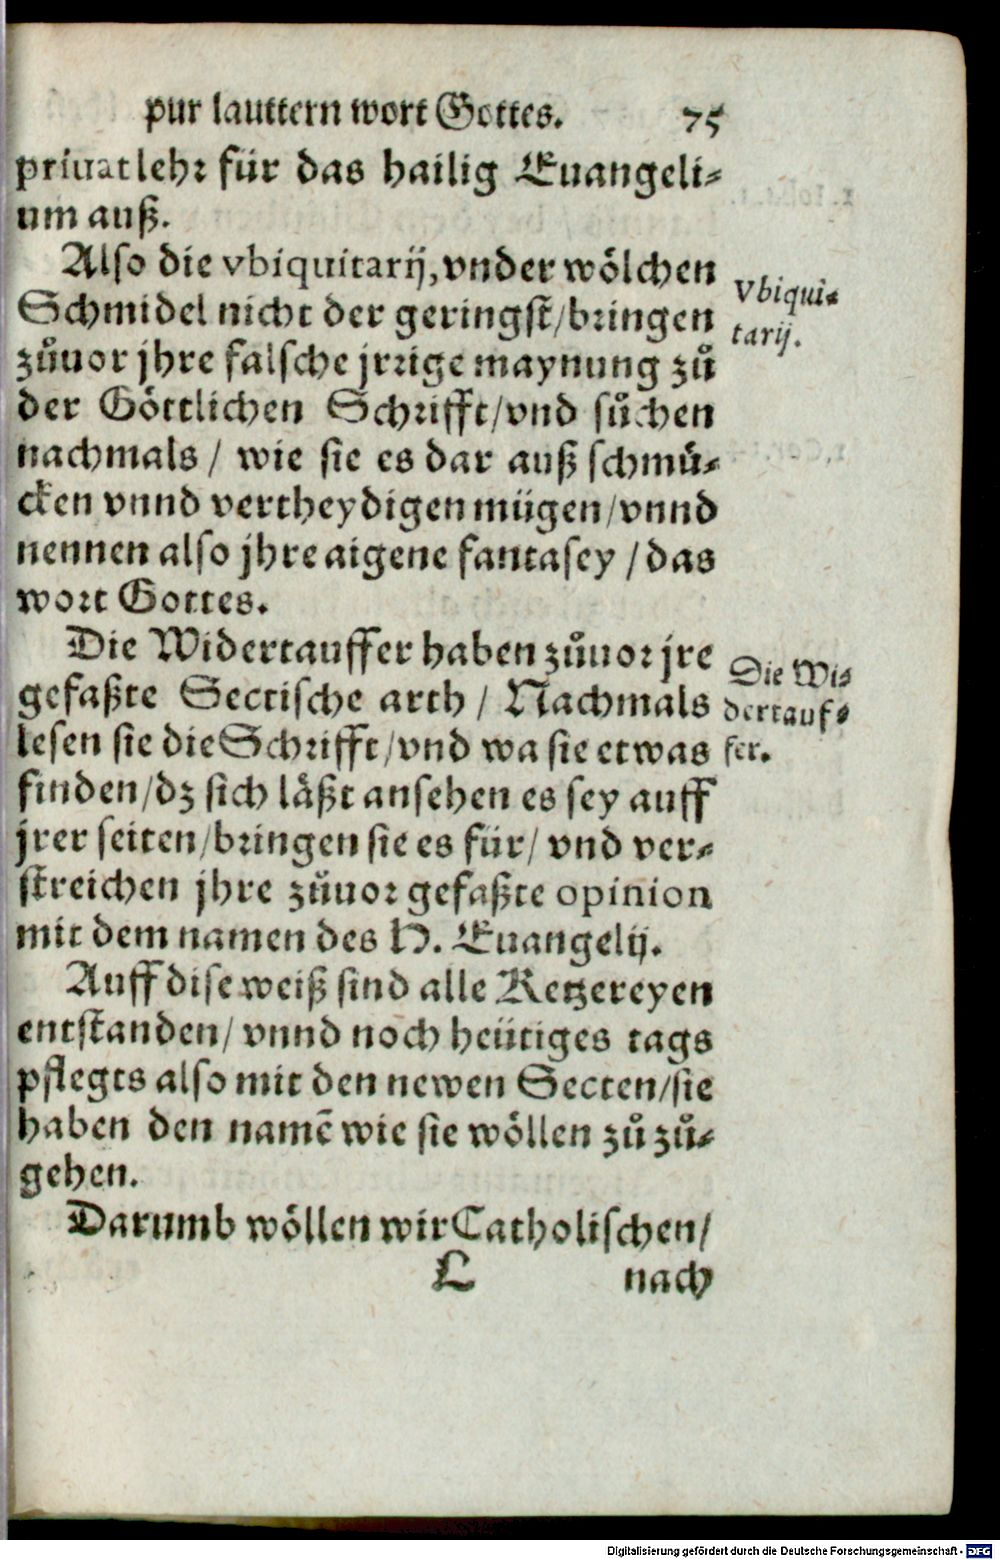 pur lauttern wort Gottes. 75
priuat lehr für das hailig Euangeli⸗
um auß.
Also die vbiquitarij, vnder wölchen
Schmidel nicht der geringst/bringen
zůuor jhre falsche jrrige maynung zů
der Göttlichen Schrifft/vnd sůchen
nachmals / wie sie es dar auß schmü⸗
cken vnnd vertheydigen mügen/vnnd
nennen also jhre aigene fantasey / das
wort Gottes.
Vbiqui⸗
tarij.
Die Widertauffer haben zůuor jre
gefaßte Sectische arth / Nachmals
lesen sie die Schrifft/vnd wa sie etwas
finden/dz sich läßt ansehen es sey auff
jrer seiten/bringen sie es für/ vnd ver⸗
streichen jhre zůuor gefaßte opinion
mit dem namen des H. Euangelij.
Die Wi⸗
dertauf⸗
fer.
Auff dise weiß sind alle Ketzereyen
entstanden/ vnnd noch heütiges tags
pflegts also mit den newen Secten/sie
haben den namē wie sie wöllen zů zů⸗
gehen.
Darumb wöllen wir Catholischen/
L nach
Digitalisierung gefördert durch die Deutsche Forschungsgemeinschaft - DFG